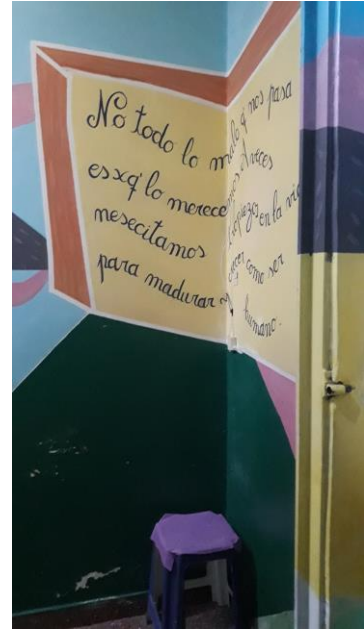 No todo lo malo q' nos pasa
es xq' lo merecemos A veces
nesecitamos tropiezos en la vida
para madurar y crecer como ser
humano.